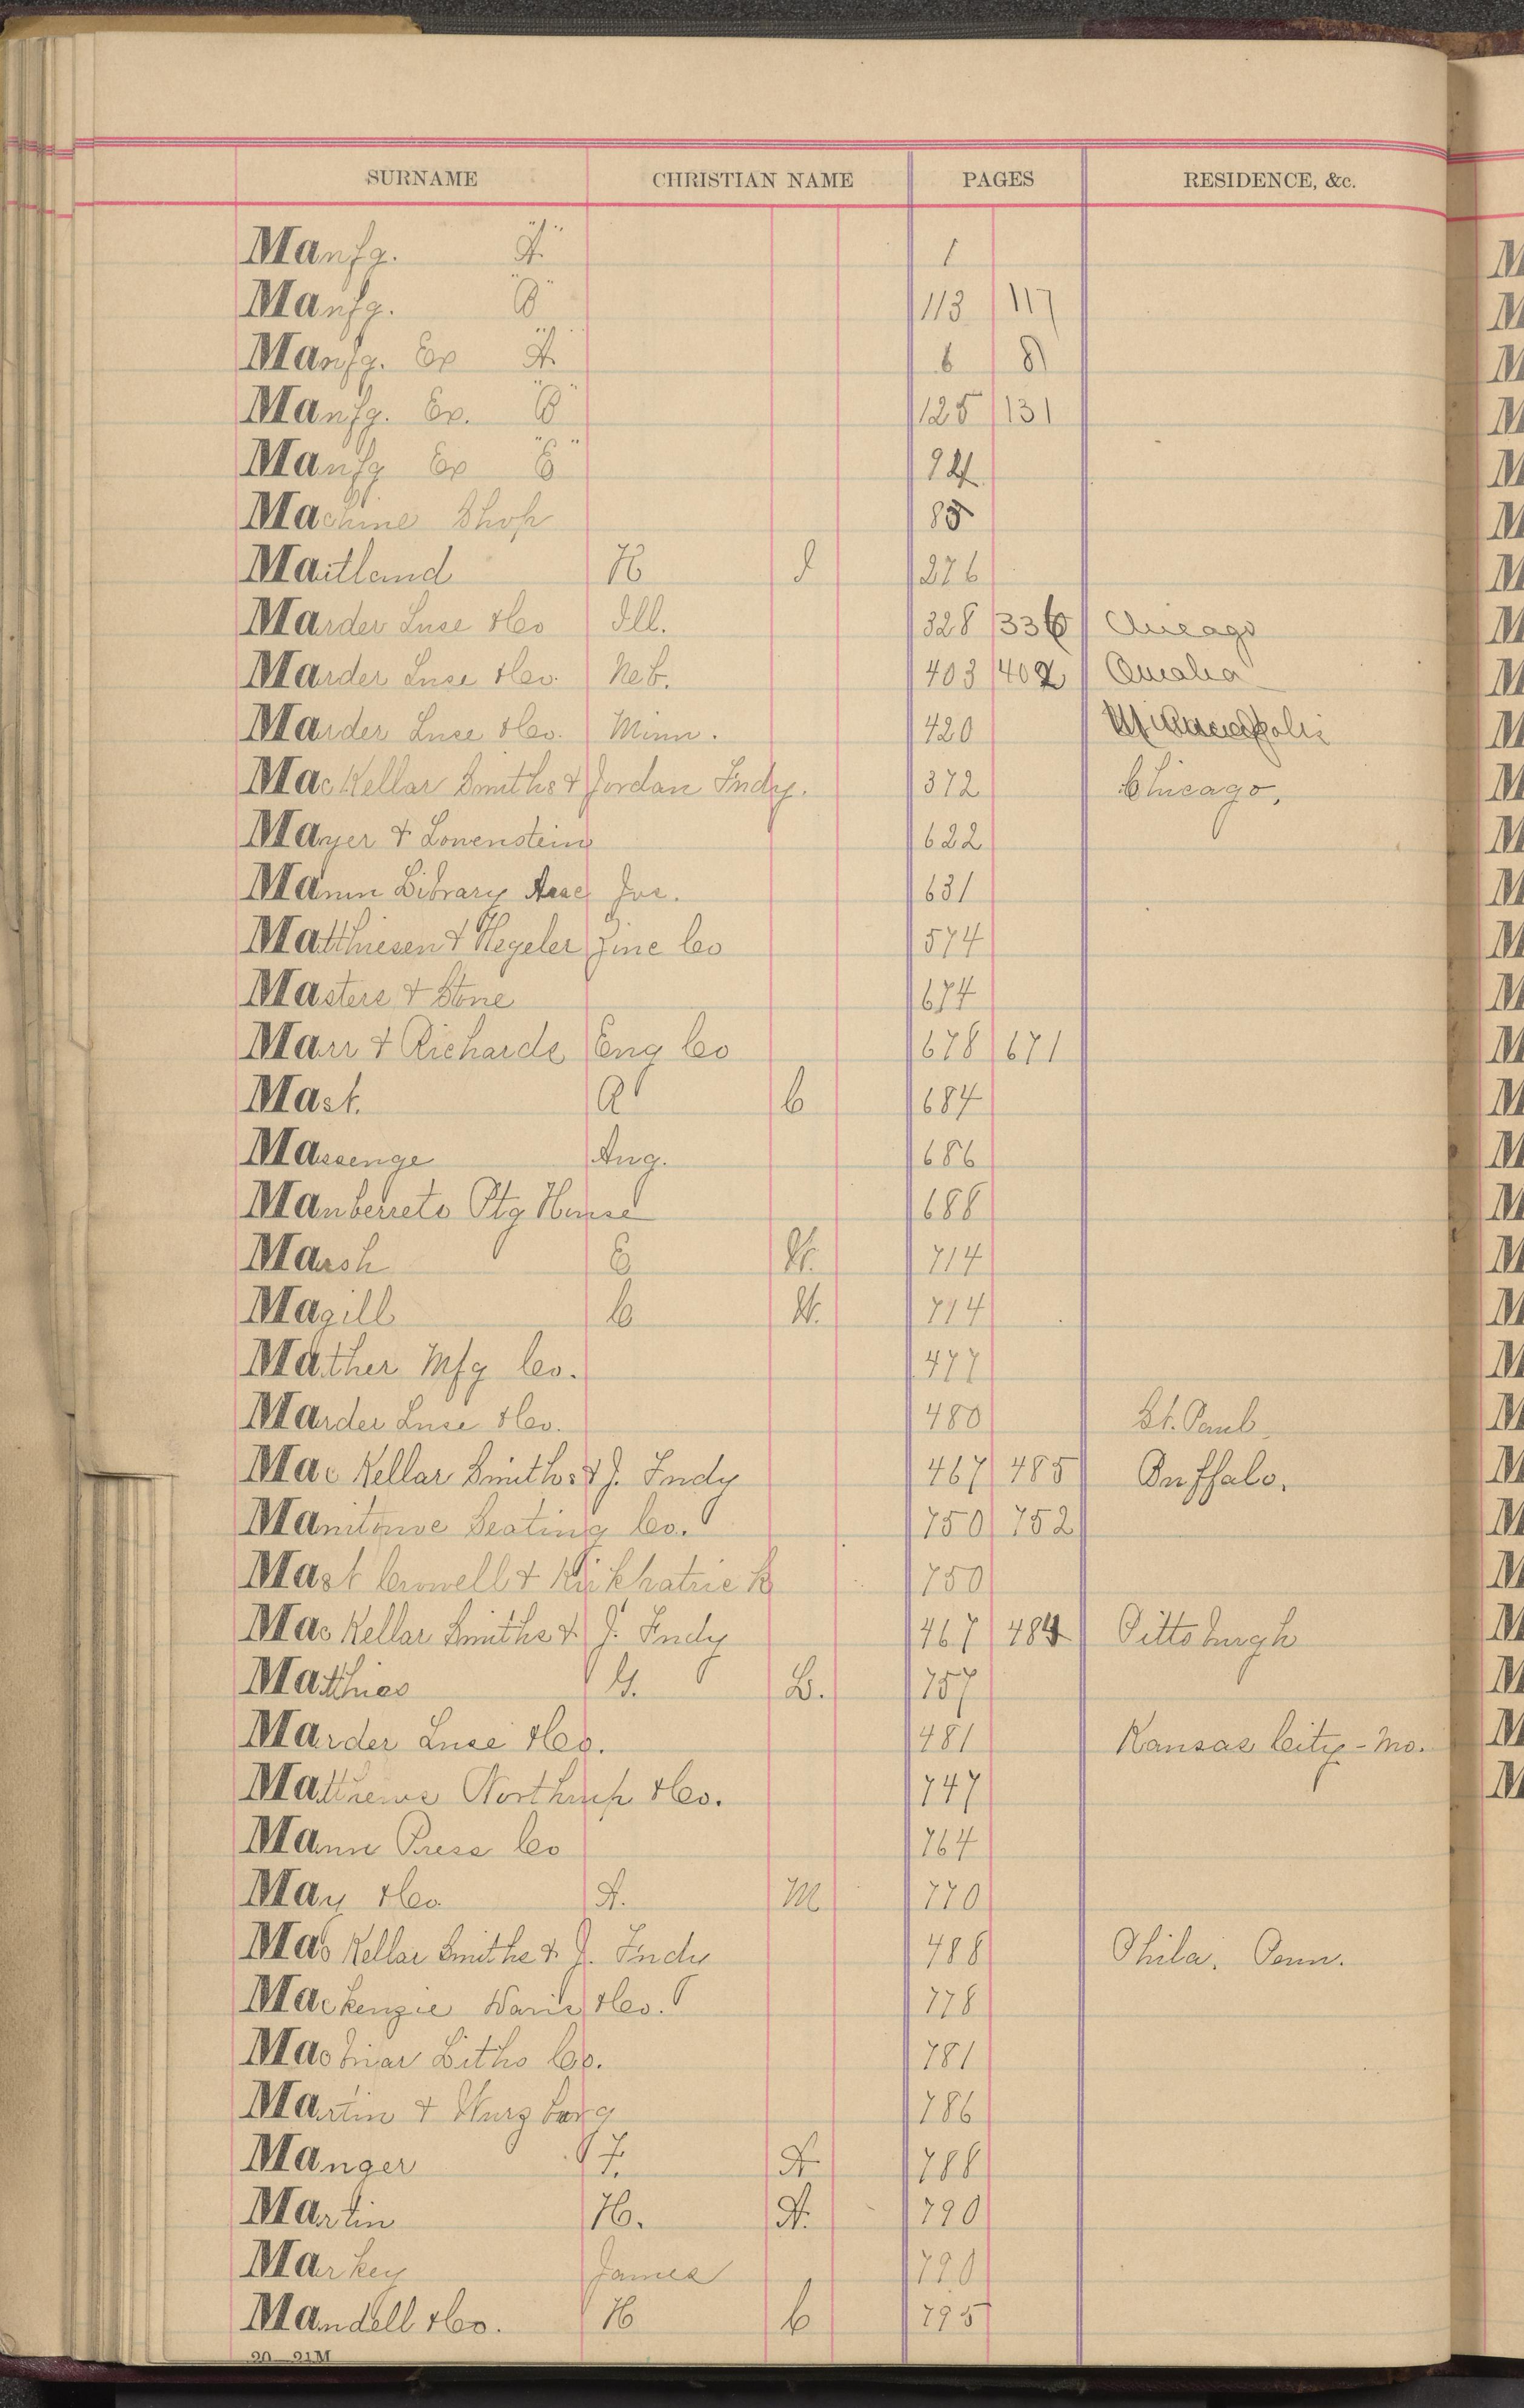 SURNAME CHRISTIAN NAME PAGES RESIDENCE, &c.
Manfg. "A" 1
Manfg. "B" 113 117
Manfg. Ex "A" 6 8
Manfg. Ex. "B" 125 131
Manfg Ex "C" 94
Machine Shop 85
Maitland H J 276
Marder Luse &Co Ill. 328 336 Chicago
Marder Luse &Co. Neb. 403 402 Omaha
Marder Luse &Co. Minn. 420 Minneapolis
MacKellar Smiths & Jordan Fndy. 372 Chicago,
Mayer & Lonenstein 622
Mann Library Assc Jos. 631
Matthiesen & Hegeler Zinc Co 574
Masters & Stone 674
Marr & Richards Eng Co 678 671
Mast. A C 684
Massenge Aug. 686
Ptg House 688
Marsh E W. 714
Magill C W. 714
Mather Mfg Co. 477
Marder Luse &Co. 480 St. Paul
MacKellar Smiths & J. Fndy 467 485 Buffalo.
Manitowoc Seating Co. 750 752
Mast Crowell & Kirkpatrick 750
MacKellar Smiths & J. Fndy 467 484 Pittsburgh
Matthies G. L. 757
Marder Luse &Co. 481 Kansas City - Mo.
Matthews Northrup &Co. 747
Mann Press Co 764
May &Co. A. M 770
MacKellar Smiths & J. Fndy 488 Phila. Penn.
Mackenzie Davis &Co. 778
Litho Co. 781
Martin & Wurzburg 786
Manger F. A 788
Martin H. A. 790
Markey James 790
Mandell &Co. H C 795
20—21M